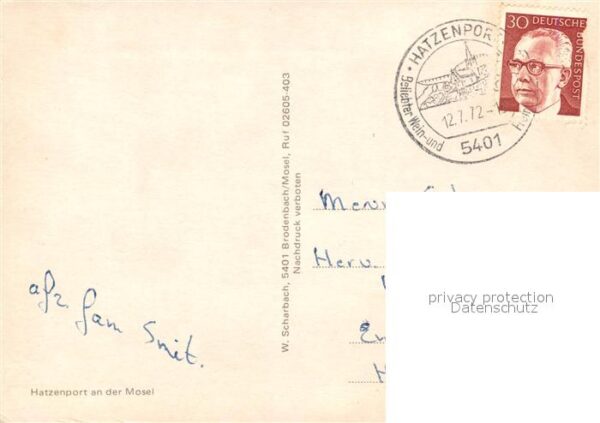 30 DEUTSCHE
BUNDESPOST
HATZENPORT
12.7.72
beliebter Wein- und
5401
W. Scharbach, 5401 Brodenbach/Mosel, Ruf 02605-403
Nachdruck verboten
afz. fam Smit.
privacy protection
Datenschutz
Hatzenport an der Mosel